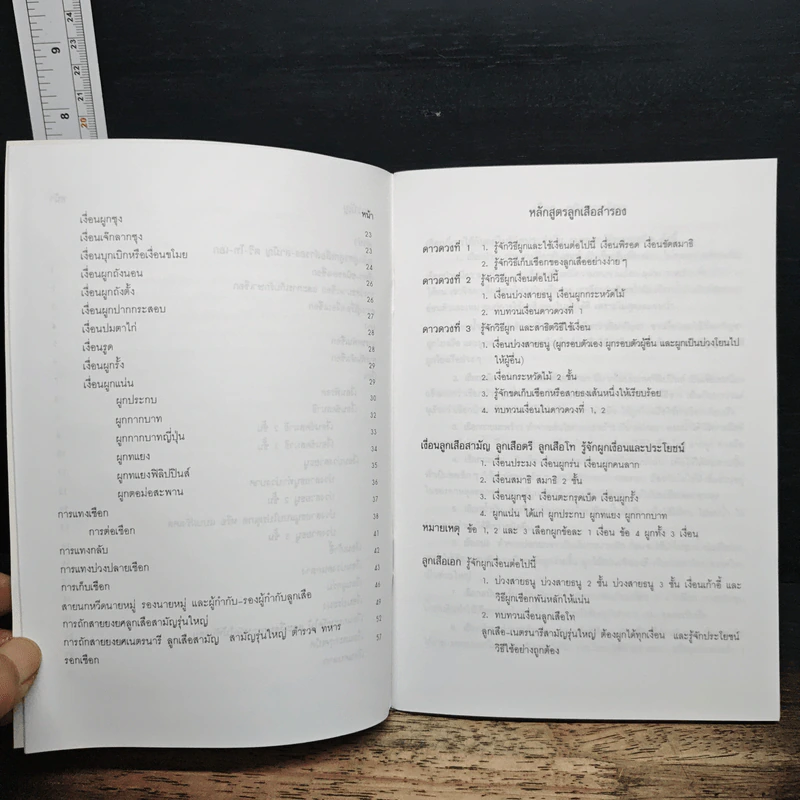 หน้า
เงื่อนผูกซุง 23
เงื่อนเจ๊กลากซุง 23
เงื่อนบุกเบิกหรือเงื่อนขโมย 24
เงื่อนผูกถังนอน 26
เงื่อนผูกถังตั้ง 26
เงื่อนผูกปากกระสอบ 27
เงื่อนปมตาไก่ 28
เงื่อนรูด 28
เงื่อนผูกรั้ง 29
เงื่อนผูกแน่น 29
ผูกประกบ 30
ผูกกากบาท 32
ผูกกากบาทญี่ปุ่น 33
ผูกทแยง 34
ผูกทแยงฟิลิปปินส์ 35
ผูกตอม่อสะพาน 37
การแทงเชือก 39
การต่อเชือก 41
การแทงกลับ 42
การแทงบ่วงปลายเชือก 43
การเก็บเชือก 46
สายนกหวีดนายหมู่ รองนายหมู่ และผู้กำกับ-รองผู้กำกับลูกเสือ 49
การถักสายยงยศลูกเสือสามัญรุ่นใหญ่ 53
การถักสายยงยศเนตรนารี ลูกเสือสามัญ สามัญรุ่นใหญ่ ตำรวจ ทหาร 57
รอกเชือก
หลักสูตรลูกเสือสำรอง
ดาวดวงที่ 1 1. รู้จักวิธีผูกและใช้เงื่อนต่อไปนี้ เงื่อนพิรอด เงื่อนขัดสมาธิ
2. รู้จักวิธีเก็บเชือกของลูกเสืออย่างง่ายๆ
ดาวดวงที่ 2 รู้จักวิธีผูกเงื่อนต่อไปนี้
1. เงื่อนบ่วงสายธนู เงื่อนผูกกระหวัดไม้
2. ทบทวนเงื่อนดาวดวงที่ 1
ดาวดวงที่ 3 รู้จักวิธีผูก และสาธิตวิธีใช้เงื่อน
1. เงื่อนบ่วงสายธนู (ผูกรอบตัวเอง ผูกรอบตัวผู้อื่น และผูกเป็นบ่วงโยนไป
ให้ผู้อื่น)
2. เงื่อนกระหวัดไม้ 2 ชั้น
3. รู้จักขดเก็บเชือกหรือสายธงเส้นหนึ่งให้เรียบร้อย
4. ทบทวนเงื่อนในดาวดวงที่ 1, 2
เงื่อนลูกเสือสามัญ ลูกเสือตรี ลูกเสือโท รู้จักผูกเงื่อนและประโยชน์
1. เงื่อนประมง เงื่อนผูกร่น เงื่อนผูกคนลาก
2. เงื่อนสมาธิ สมาธิ 2 ชั้น
3. เงื่อนผูกซุง เงื่อนตะกรุดเบ็ด เงื่อนผูกรั้ง
4. ผูกแน่น ได้แก่ ผูกประกบ ผูกทแยง ผูกกากบาท
หมายเหตุ ข้อ 1, 2 และ 3 เลือกผูกข้อละ 1 เงื่อน ข้อ 4 ผูกทั้ง 3 เงื่อน
ลูกเสือเอก รู้จักผูกเงื่อนต่อไปนี้
1. บ่วงสายธนู บ่วงสายธนู 2 ชั้น บ่วงสายธนู 3 ชั้น เงื่อนเก้าอี้ และ
วิธีผูกเชือกพันหลักให้แน่น
2. ทบทวนเงื่อนลูกเสือโท
ลูกเสือ-เนตรนารีสามัญรุ่นใหญ่ ต้องผูกได้ทุกเงื่อน และรู้จักประโยชน์
วิธีใช้อย่างถูกต้อง
9
8
24
23
22
21
20